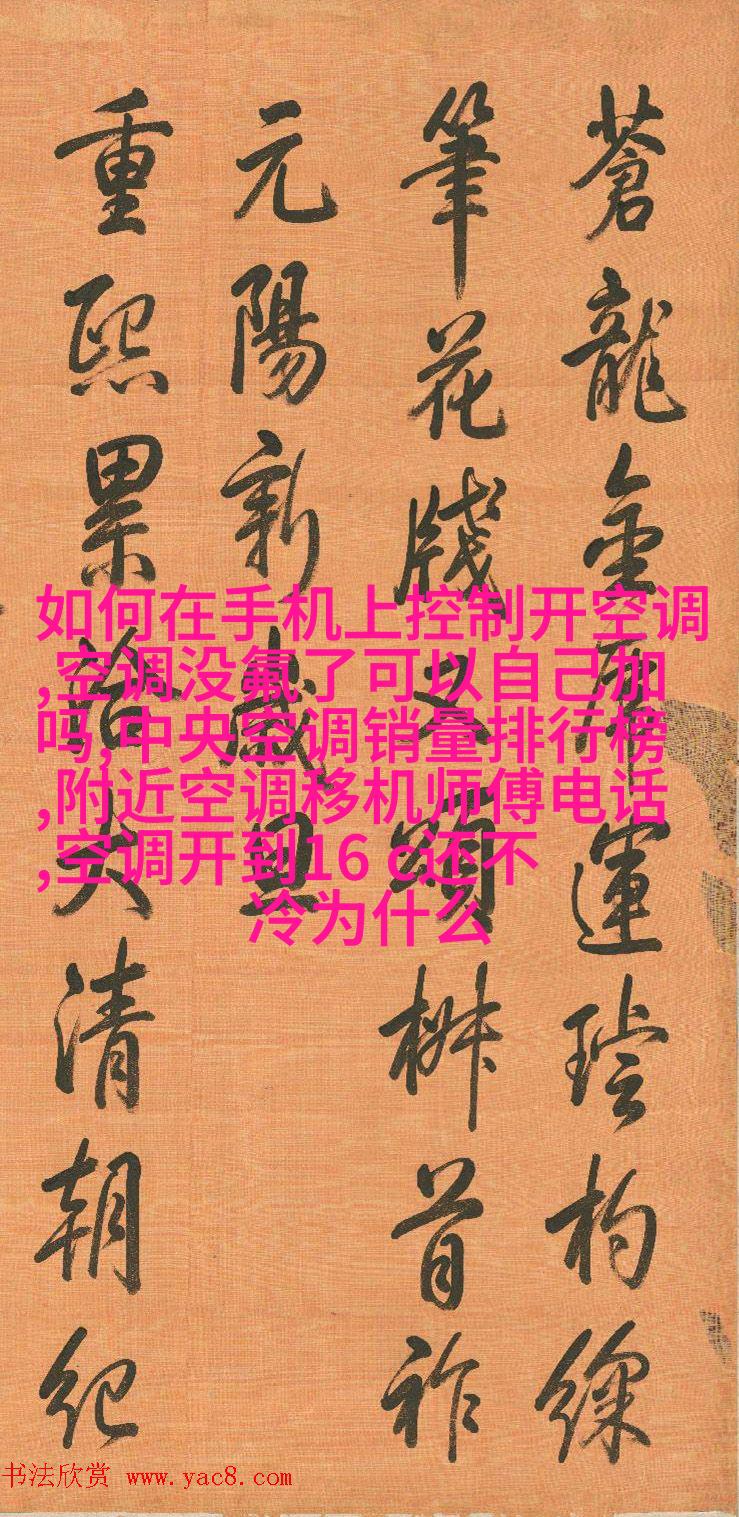 蒼龍金運杓
筆花牋又頌椒首祚
元陽新歲
重熙累洽大清朝紀
如何在手机上控制开空调
,空调没氟了可以自己加
吗,中央空调销量排行榜
,附近空调移机师傅电话
,空调开到16 c还不
冷为什么
书法欣赏 www.yac8.com